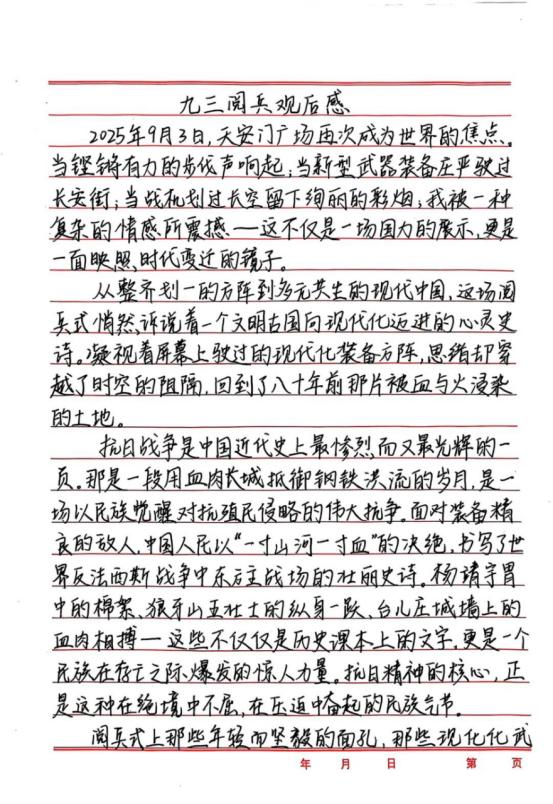 九三阅兵观后感
2025年9月3日,天安门广场再次成为世界的焦点。
当铿锵有力的步伐声响起;当新型武器装备庄严驶过
长安街;当战机划过长空留下绚丽的彩烟;我被一种
复杂的情感所震撼——这不仅是一场国力的展示,更是
一面映照时代变迁的镜子。
从整齐划一的方阵到多元共生的现代中国,这场阅
兵式悄然诉说着一个文明古国向现代化迈进的心灵史
诗。凝视着屏幕上驶过的现代化装备方阵,思绪却穿
越了时空的阻隔,回到了八十年前那片被血与火浸染
的土地。
抗日战争是中国近代史上最惨烈而又最光辉的一
页。那是一段用血肉长城抵御钢铁洪流的岁月,是一
场以民族觉醒对抗殖民侵略的伟大抗争。面对装备精
良的敌人,中国人民以“一寸山河一寸血”的决绝,书写了世
界反法西斯战争中东方主战场的壮丽史诗。杨靖宇胃
中的棉絮、狼牙山五壮士的纵身一跃、台儿庄城墙上的
血肉相搏——这些不仅仅是历史课本上的文字,更是一个
民族在存亡之际爆发的惊人力量。抗日精神的核心,正
是这种在绝境中不屈,在压迫中奋起的民族气节。
阅兵式上那些年轻而坚毅的面孔,那些现化化武
年 月 日 第 页